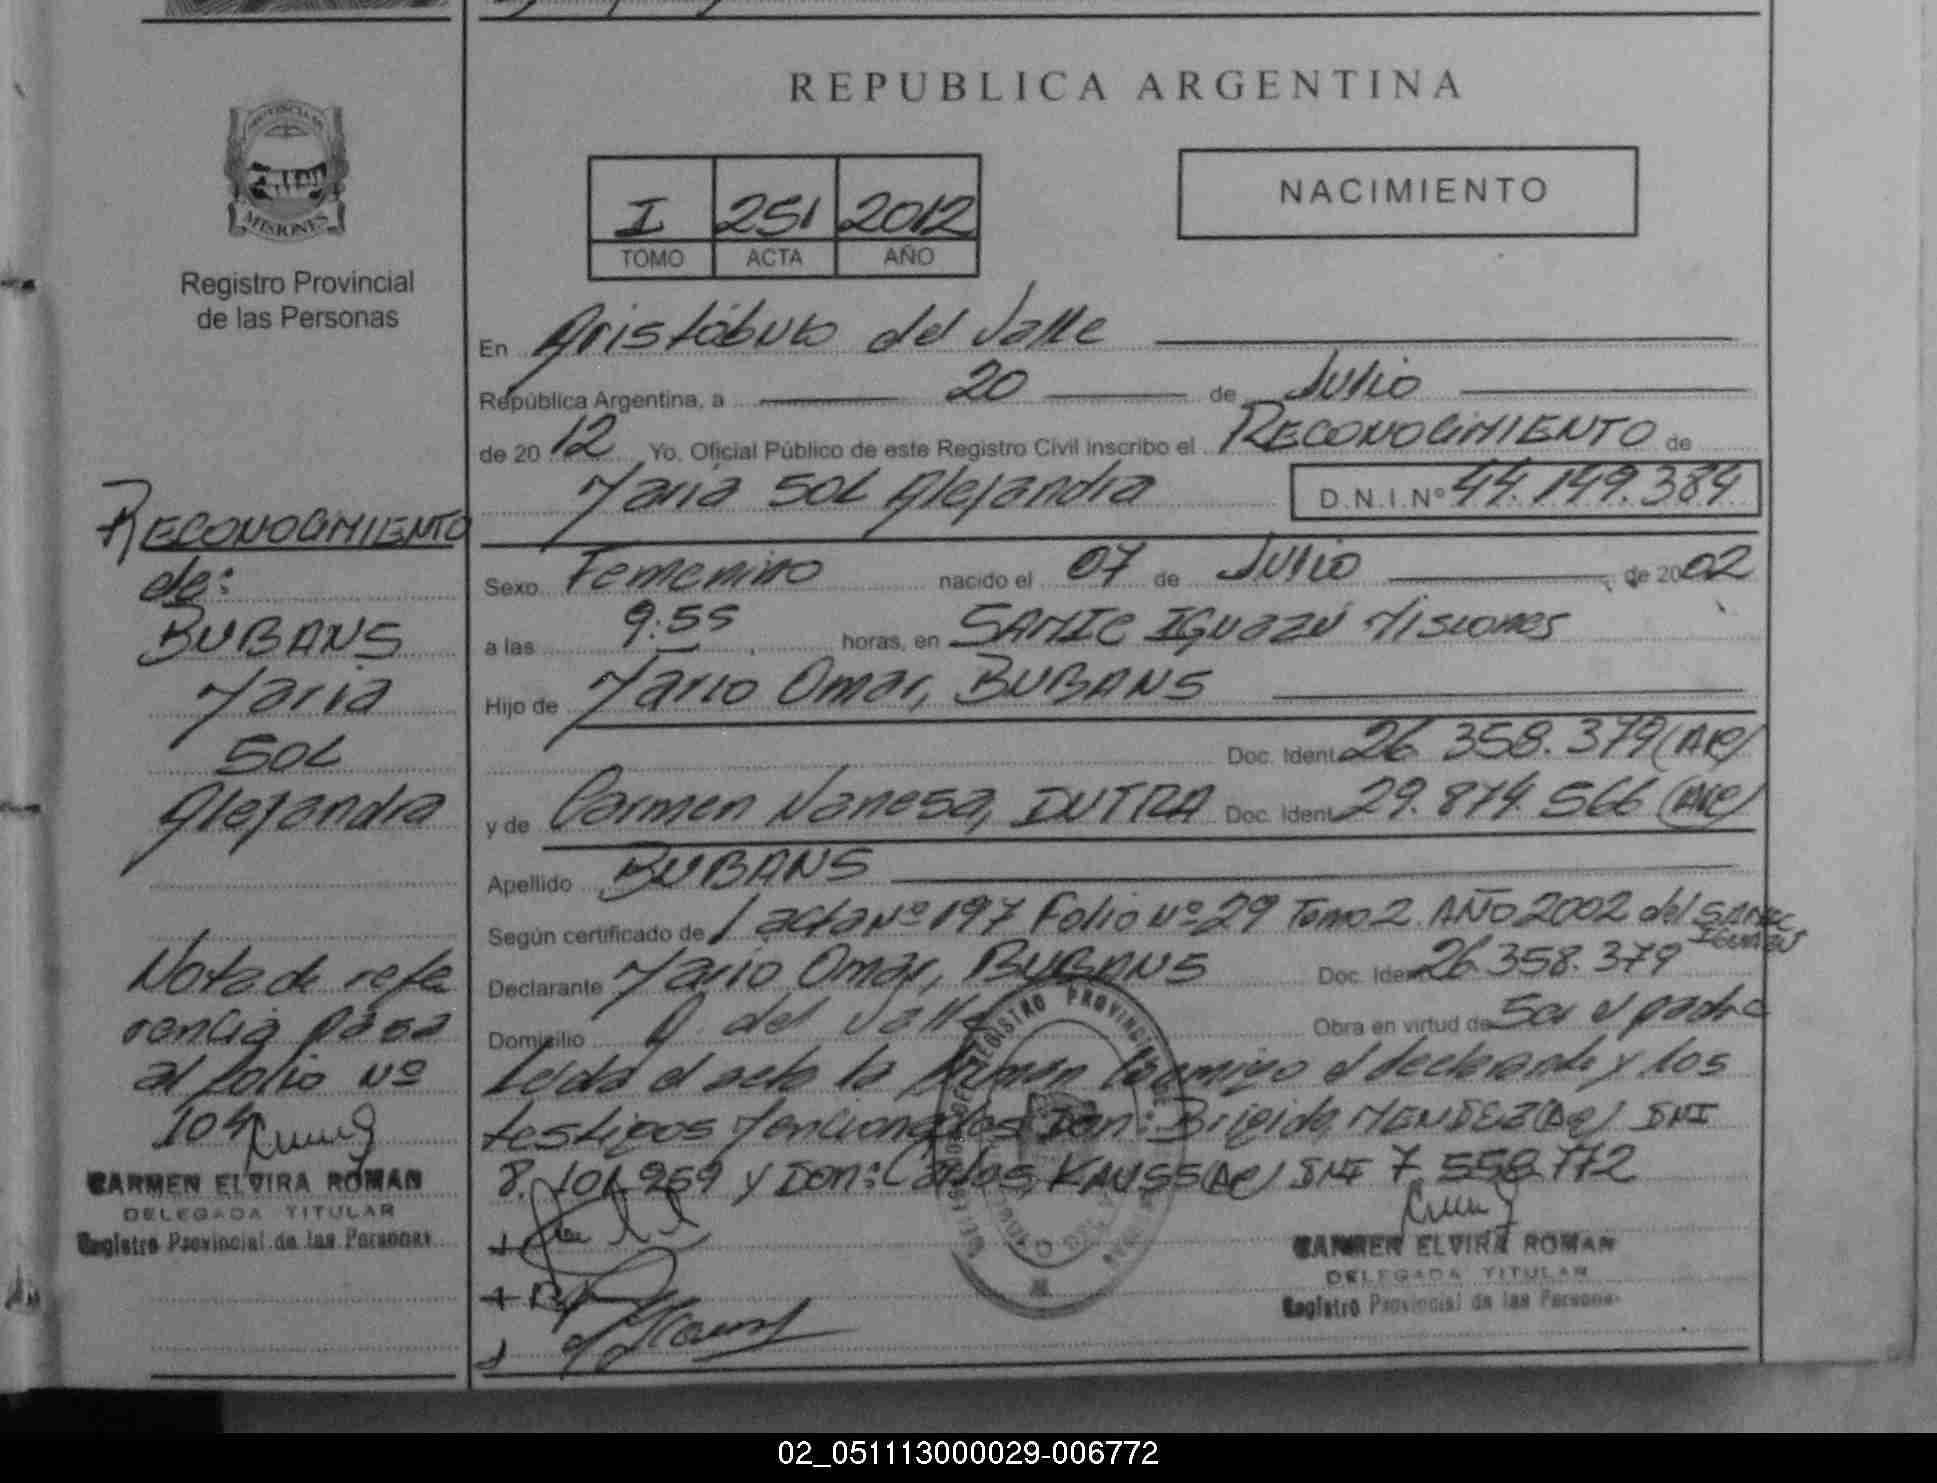 PROVINCIA DE
MISIONES
Registro Provincial
de las Personas
RECONOCIMIENTO
de:
BUBANS
Maria
SOL
Alejandra
Nota de refe
rencia pasa
al folio Nº
104
CARMEN ELVIRA ROMAN
DELEGADA TITULAR
Registro Provincial de las Personas
REPUBLICA ARGENTINA
I 251 2012
TOMO ACTA AÑO
NACIMIENTO
En Aristóbulo del Valle
República Argentina, a 20 de Julio
de 2012 Yo. Oficial Público de este Registro Civil inscribo el RECONOCIMIENTO de
Maria SOL Alejandra D.N.I.Nº 44.149.384
Sexo Femenino nacido el 07 de Julio de 2002
a las 9:55 horas, en SAMIC IGuazú Misiones
Hijo de Mario Omar, BUBANS
Doc. Ident 26 358.379 (AR)
y de Carmen Vanesa, DUTRA Doc. Ident 29.874.566 (AR)
Apellido BUBANS
Según certificado de acta Nº 197 Folio Nº 29 Tomo 2 AÑO 2002 del SAMIC
IGUAZÚ
Declarante Mario Omar, BUBANS Doc. Ident 26 358.379
Domicilio A. del Valle Obra en virtud de Ser el padre
Leída el acta la firman conmigo el declarante y los
testigos mencionados Don: Brigido, MENDEZ (AR) DNI
8.101.969 y Don: Carlos, KAUSS (AR) DNI 7.558.772
REGISTRO PROVINCIAL DE
CARMEN ELVIRA ROMAN
DELEGADA TITULAR
Registro Provincial de las Personas
02_051113000029-006772